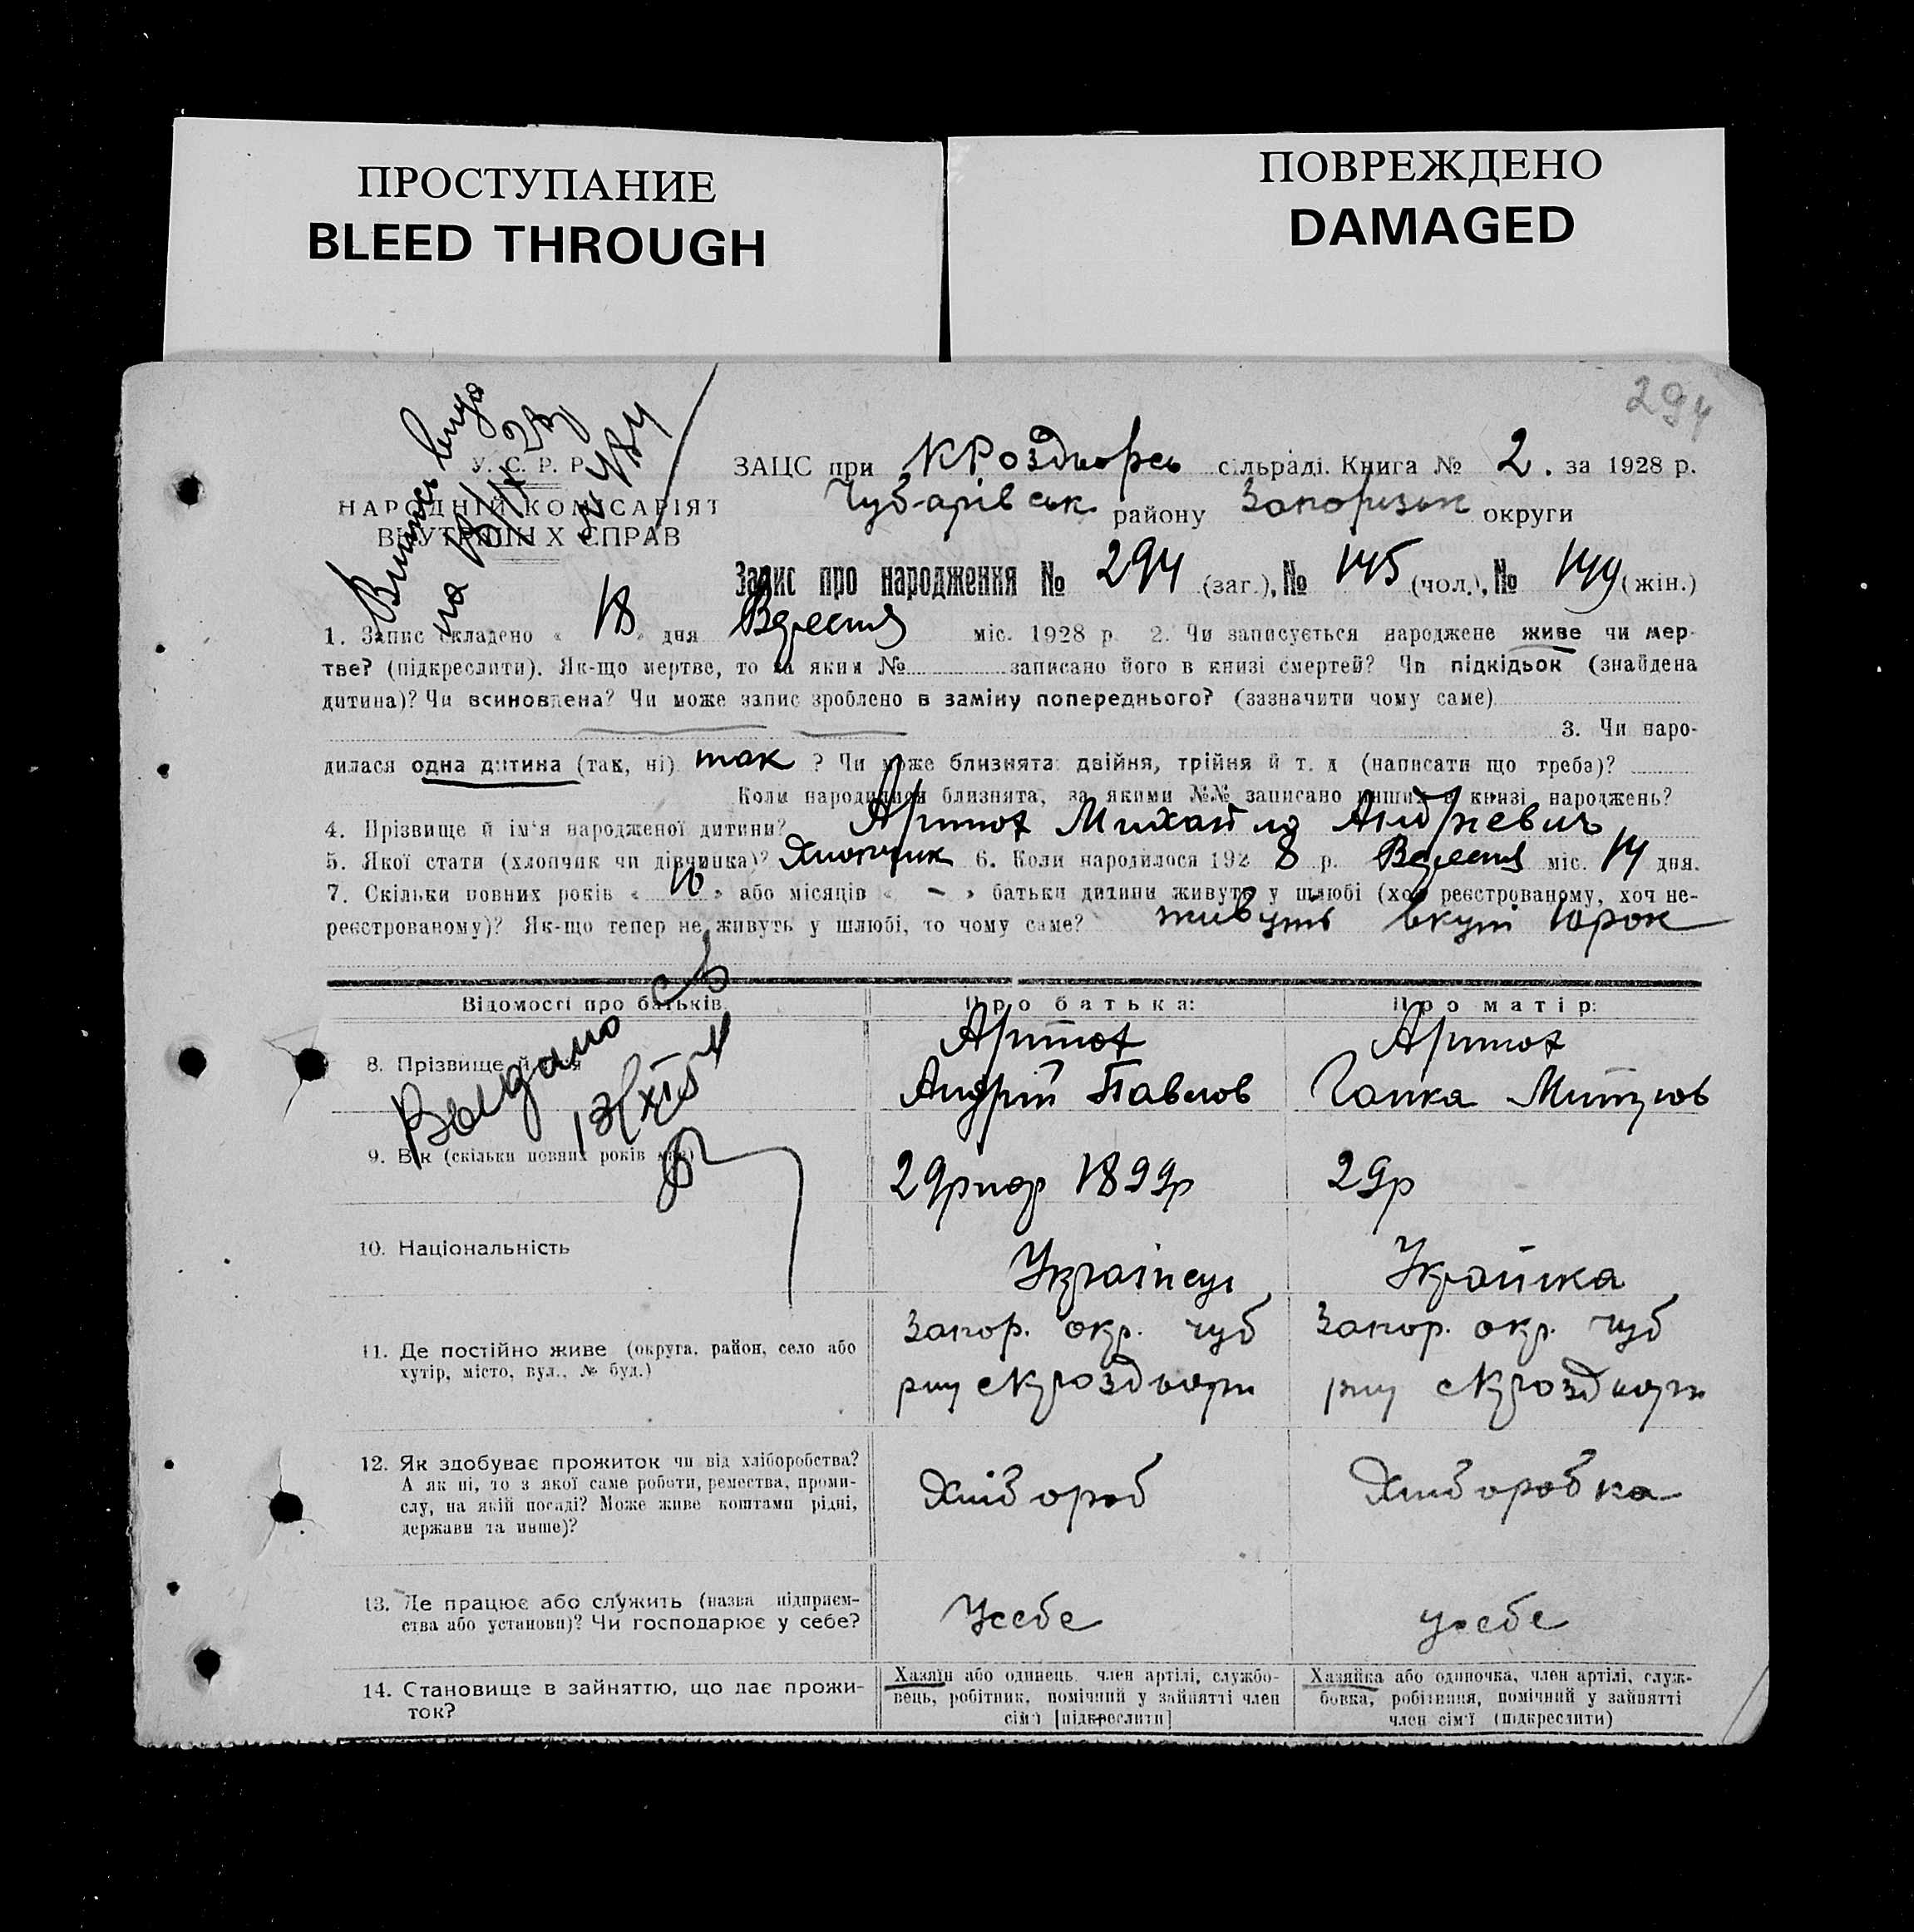 ПРОСТУПАНИЕ
BLEED THROUGH
ПОВРЕЖДЕНО
DAMAGED
294
У. С. Р. Р.
НАРОДНІЙ КОМІСАРІЯТ
ВНУТРІШНІХ СПРАВ
ЗАЦС при КРоздорсь сільраді. Книга № 2. за 1928 р.
Чубарівськ району Запорізьк округи
Запис про народження № 294 (заг.), № 145 (чол.), № 149 (жін.)
1. Запис складено « 18 » дня Вересня міс. 1928 р. 2. Чи записується народжене живе чи мер-
тве? (підкреслити). Як-що мертве, то за яким № записано його в книзі смертей? Чи підкідьок (знайдена
дитина)? Чи всиновлена? Чи може запис зроблено в заміну попереднього? (зазначити чому саме)
3. Чи наро-
дилася одна дитина (так, ні) так ? Чи може близнята: двійня, трійня й т. д (написати що треба)?
Коли народилися близнята, за якими №№ записано инших в книзі народжень?
4. Прізвище й ім'я народженої дитини? Артюх Михайло Андрієвич
5. Якої стати (хлопчик чи дівчинка)? Хлопчик 6. Коли народилося 192 8 р. Вересня міс. 14 дня.
7. Скільки повних років « 10 » або місяців « - » батьки дитини живуть у шлюбі (хоч реєстрованому, хоч не-
реєстрованому)? Як-що тепер не живуть у шлюбі, то чому саме? живуть вкупі
Відомості про батьків. Про батька: Про матір:
8. Прізвище й ім'я
Артюх
Андрій Павлов
Артюх
Гапка
9. Вік (скільки повних років має)
29р 1899р
29р
10. Національність
Українец
Українка
11. Де постійно живе (округа, район, село або
хутір, місто, вул., № буд.)
Запор. окр. чуб
Запор. окр. чуб
12. Як здобуває прожиток чи від хліборобства?
А як ні, то з якої саме роботи, ремества, проми-
слу, на якій посаді? Може живе коштами рідні,
держави та инше)?
Хлібороб
Хлібороб ка
13. Де працює або служить (назва підприєм-
ства або установи)? Чи господарює у себе?
Усебе
усебе
14. Становище в зайняттю, що дає прожи-
ток?
Хазяїн або одинець, член артілі, службо-
вець, робітник, помічний у зайнятті член
сім'ї [підкреслити]
Хазяйка або одиночка, член артілі, служ-
бовка, робітниця, помічний у зайнятті
член сім'ї (підкреслити)
Выдано